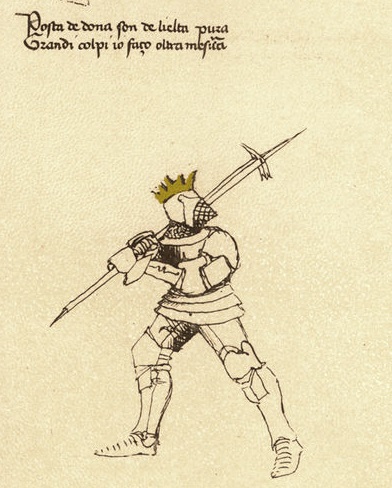 Posta de dona son de lielta pura
Grandi colpi io faço oltra mesura